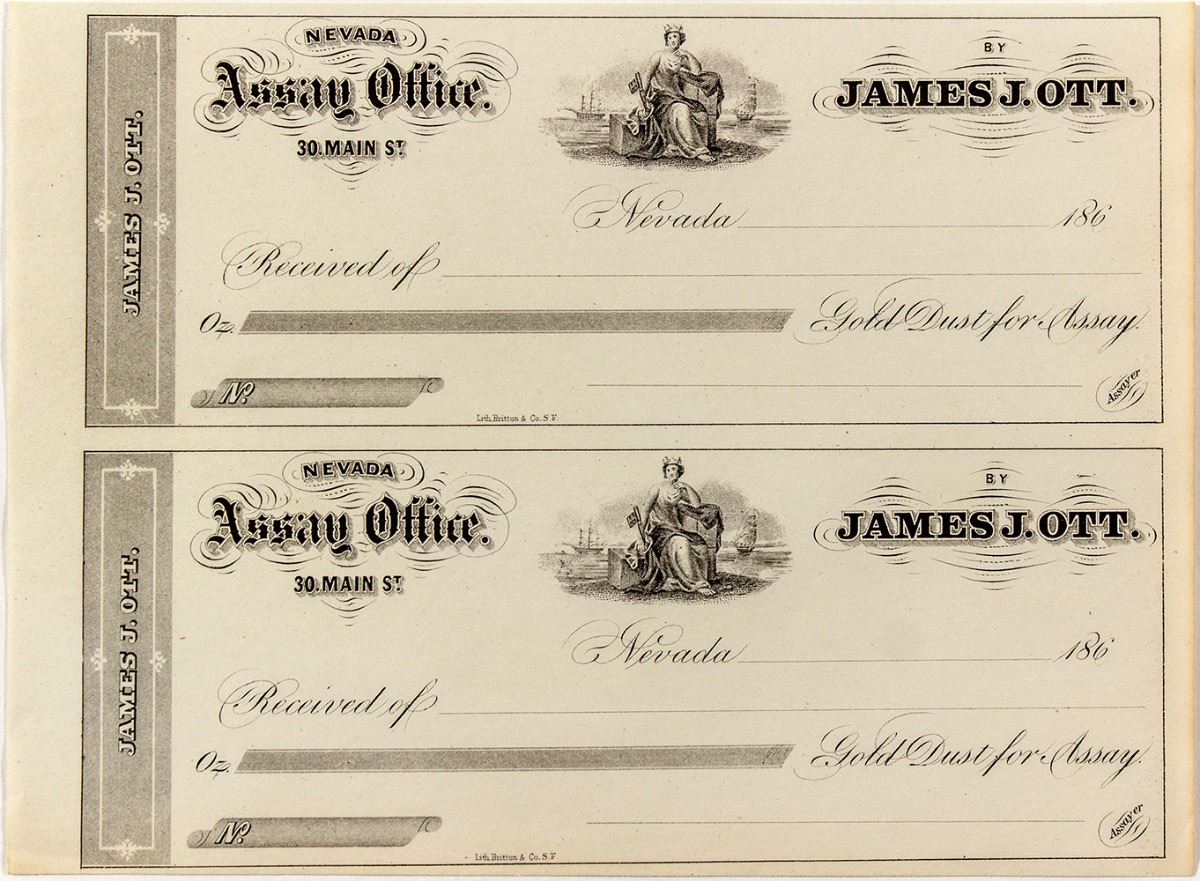 JAMES J. OTT.
NEVADA
Assay Office.
30. MAIN ST
BY
JAMES J. OTT.
Nevada 186
Received of
Oz. Gold Dust for Assay.
No.
Assayer
Lith. Britton & Co. S. F.
JAMES J. OTT.
NEVADA
Assay Office.
30. MAIN ST
BY
JAMES J. OTT.
Nevada 186
Received of
Oz. Gold Dust for Assay.
No.
Assayer
Lith. Britton & Co. S. F.